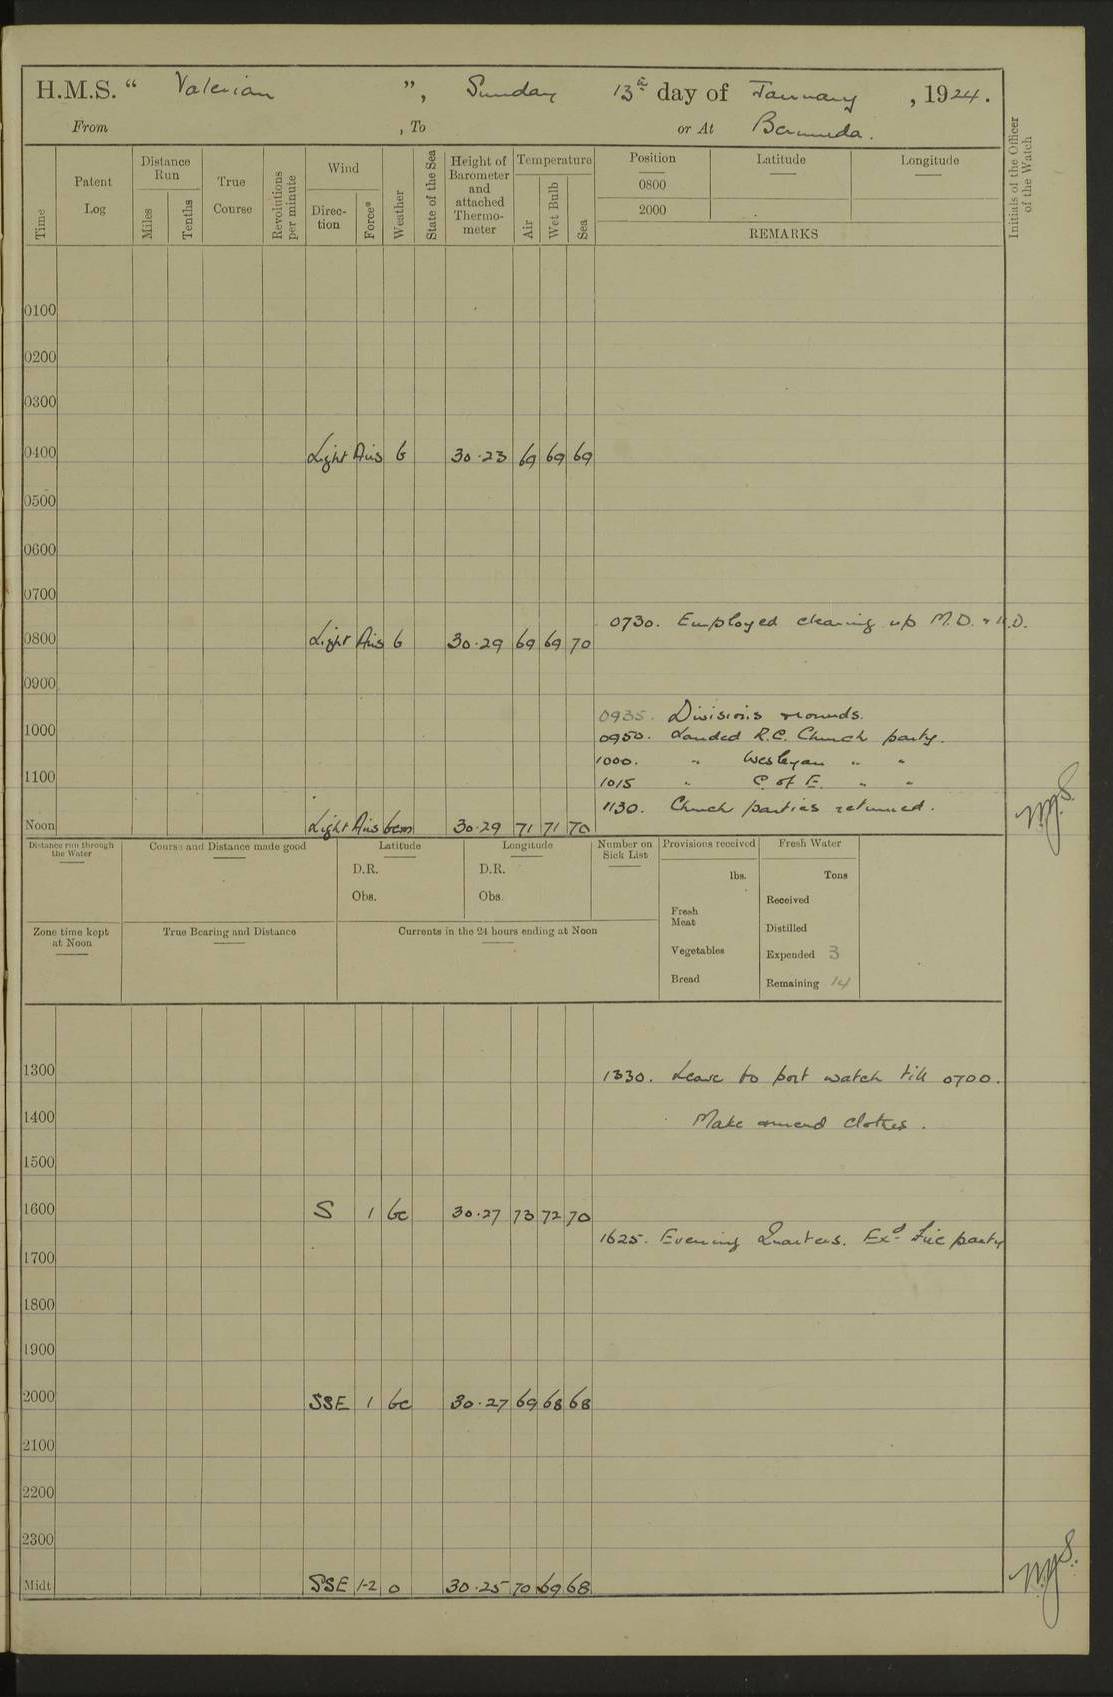 H.M.S. “ Valerian ”, Sunday 13th day of January , 1924.
From , To or At Bermuda.
Time
Patent Log
Distance Run
Miles
Tenths
True Course
Revolutions per minute
Wind
Direc-tion
Force*
Weather
State of the Sea
Height of Barometer and attached Thermo-meter
Temperature
Air
Wet Bulb
Sea
Position Latitude Longitude
0800
2000
REMARKS
Initials of the Officer of the Watch
0100
0200
0300
0400 Light Airs b 30.23 69 69 69
0500
0600
0700
0730. Employed cleaning up M.D. & U.D.
0800 Light Airs b 30.29 69 69 70
0900
0935. Divisions rounds.
1000 0950. Landed R.C. Church party.
1000. " Wesleyan " "
1100 1015 " C of E. " "
1130. Church parties returned.
Noon Light Airs bcm 30.29 71 71 70
Distance run through the Water
Course and Distance made good
Latitude
D.R.
Obs.
Longitude
D.R.
Obs.
Number on Sick List
Provisions received
lbs.
Fresh Meat
Vegetables
Bread
Fresh Water
Tons
Received
Distilled
Expended 3
Remaining 14
Zone time kept at Noon
True Bearing and Distance
Currents in the 24 hours ending at Noon
1300 1330. Leave to port watch till 0700.
1400 Make & mend clothes.
1500
1600 S 1 bc 30.27 73 72 70
1625. Evening Quarters. Exd. Fire party
1700
1800
1900
2000 SSE 1 bc 30.27 69 68 68
2100
2200
2300
Midt SSE 1-2 o 30.25 70 69 68